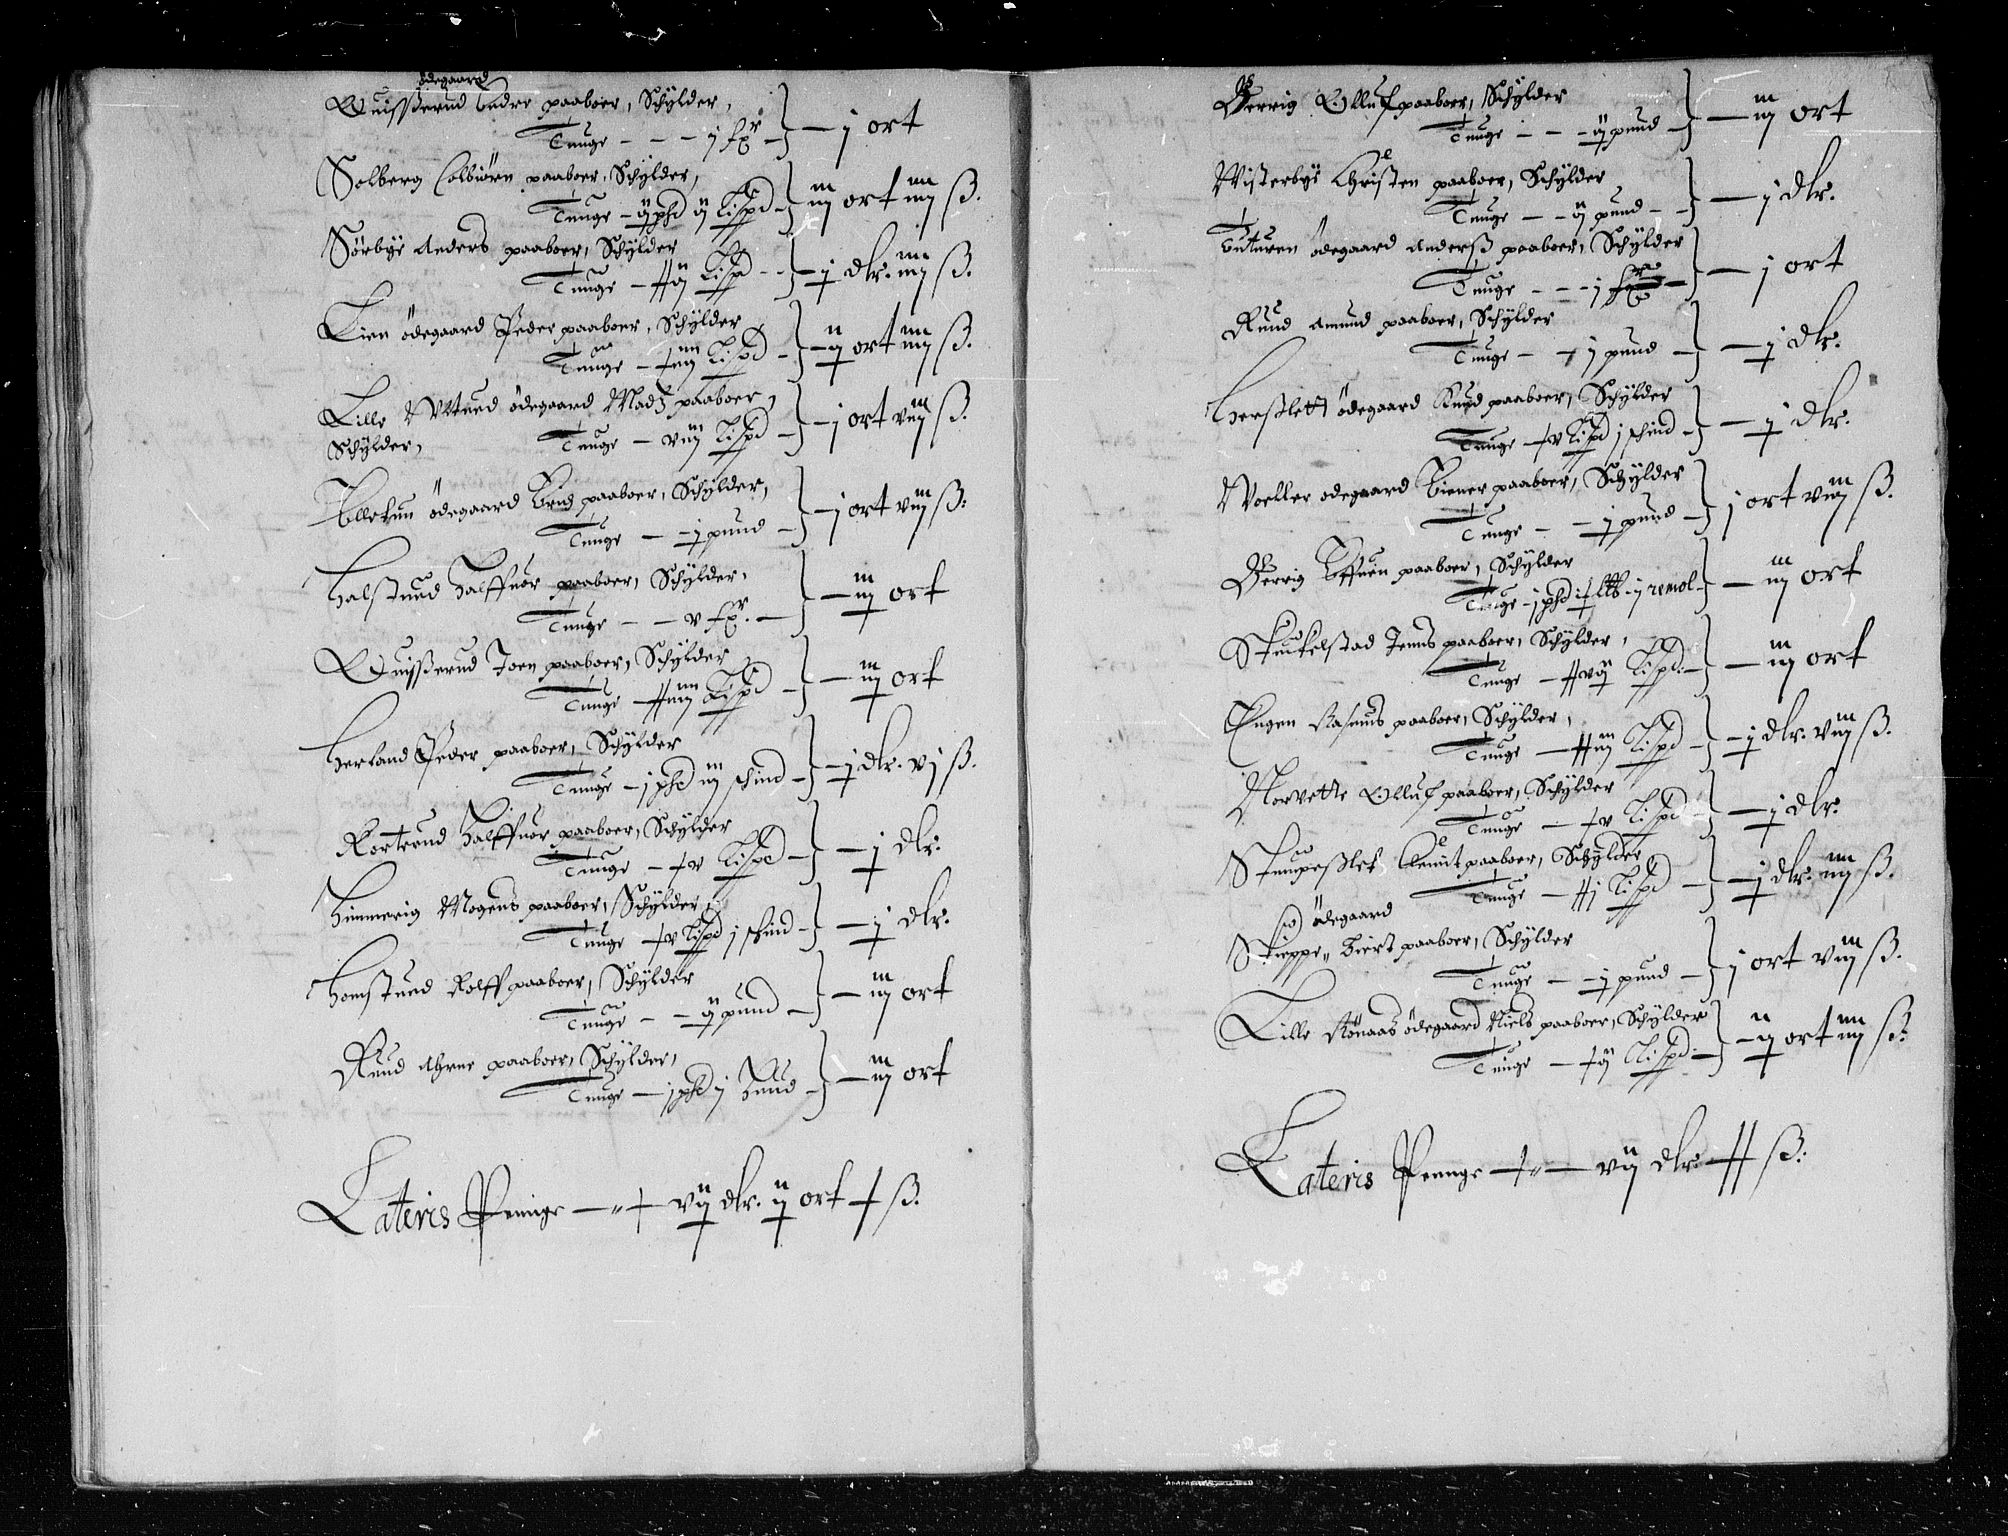 ödegaard
Quisserud Endre paaboer, Schylder,
Tunge - - - j fxr - - j ort
Solberg Colbiörn paaboer, Schylder,
Tunge - ij phd ij Lispd - iij ort iiij ß.
Sörbye Anders paaboer, Schylder
Tunge - ij Lispd - - j dlr. iiij ß.
Lien ödegaard Peder paaboer, Schylder
Tunge - iiij Lispd - ij ort iiij ß.
Lille ödegaard Madz paaboer,
Schylder, Tunge - viij Lispd - j ort viij ß.
ödegaard paaboer, Schylder,
Tunge - - j pund - j ort viij ß:
Halstund Halffuor paaboer, Schylder,
Tunge - - v fxr. - - iij ort
Quisserud Joen paaboer, Schylder
Tunge - iiij Lispd - - iij ort
Herland Peder paaboer, Schylder
Tunge - j phd iij schind - j dlr. vj ß.
Korterud Halffuor paaboer, Schylder
Tunge - + v Lispd - - j dlr.
Himmerig Mogens paaboer, Schylder,
Tunge + v Lispd j schind - - j dlr.
Homstued Rolff paaboer, Schylder
Tunge - - ij pund - - iij ort
Ruud Ahrne paaboer, Schylder,
Tunge - j phd j Huud - - iij ort
Lateris Peninge - „ + vij dlr. ij ort + ß.
Berrig Olluf paaboer, Schylder
Tunge - - - ij pund - - iij ort
Wisterbye Christen paaboer, Schylder
Tunge - - ij pund - - - j dlr.
ödegaard Anderß paaboer, Schylder
Tunge - - - j fxr - - j ort
Ruud Amund paaboer, Schylder
Tunge - - j pund - - j dlr.
Herßlett ödegaard Knud paaboer, Schylder
Tunge + v Lispd j schind - - j dlr.
Woeller ödegaard Einer paaboer, Schylder
Tunge - - j pund - j ort viij ß.
Berrig paaboer, Schylder
Tunge - j phd j remol - - iij ort
Skukelstad Jenns paaboer, Schylder,
Tunge - vij Lispd: - - iij ort
Engen Rasmus paaboer, Schylder,
Tunge - iij Lispd - - j dlr. viij ß.
Norvette Olluf paaboer, Schylder
Tunge - + v Lispd - - j dlr.
paaboer, Schylder
Tunge - j Lispd - - j dlr. iiij ß.
ödegaard
Skieppe„ paaboer, Schylder
Tunge - - j pund - j ort viij ß.
Lille Rönaas ödegaard Niels paaboer, Schylder
Tunge - + ij Lispd: - - ij ort iiij ß:
Lateris Pennge + „ - vij dlr. ß: